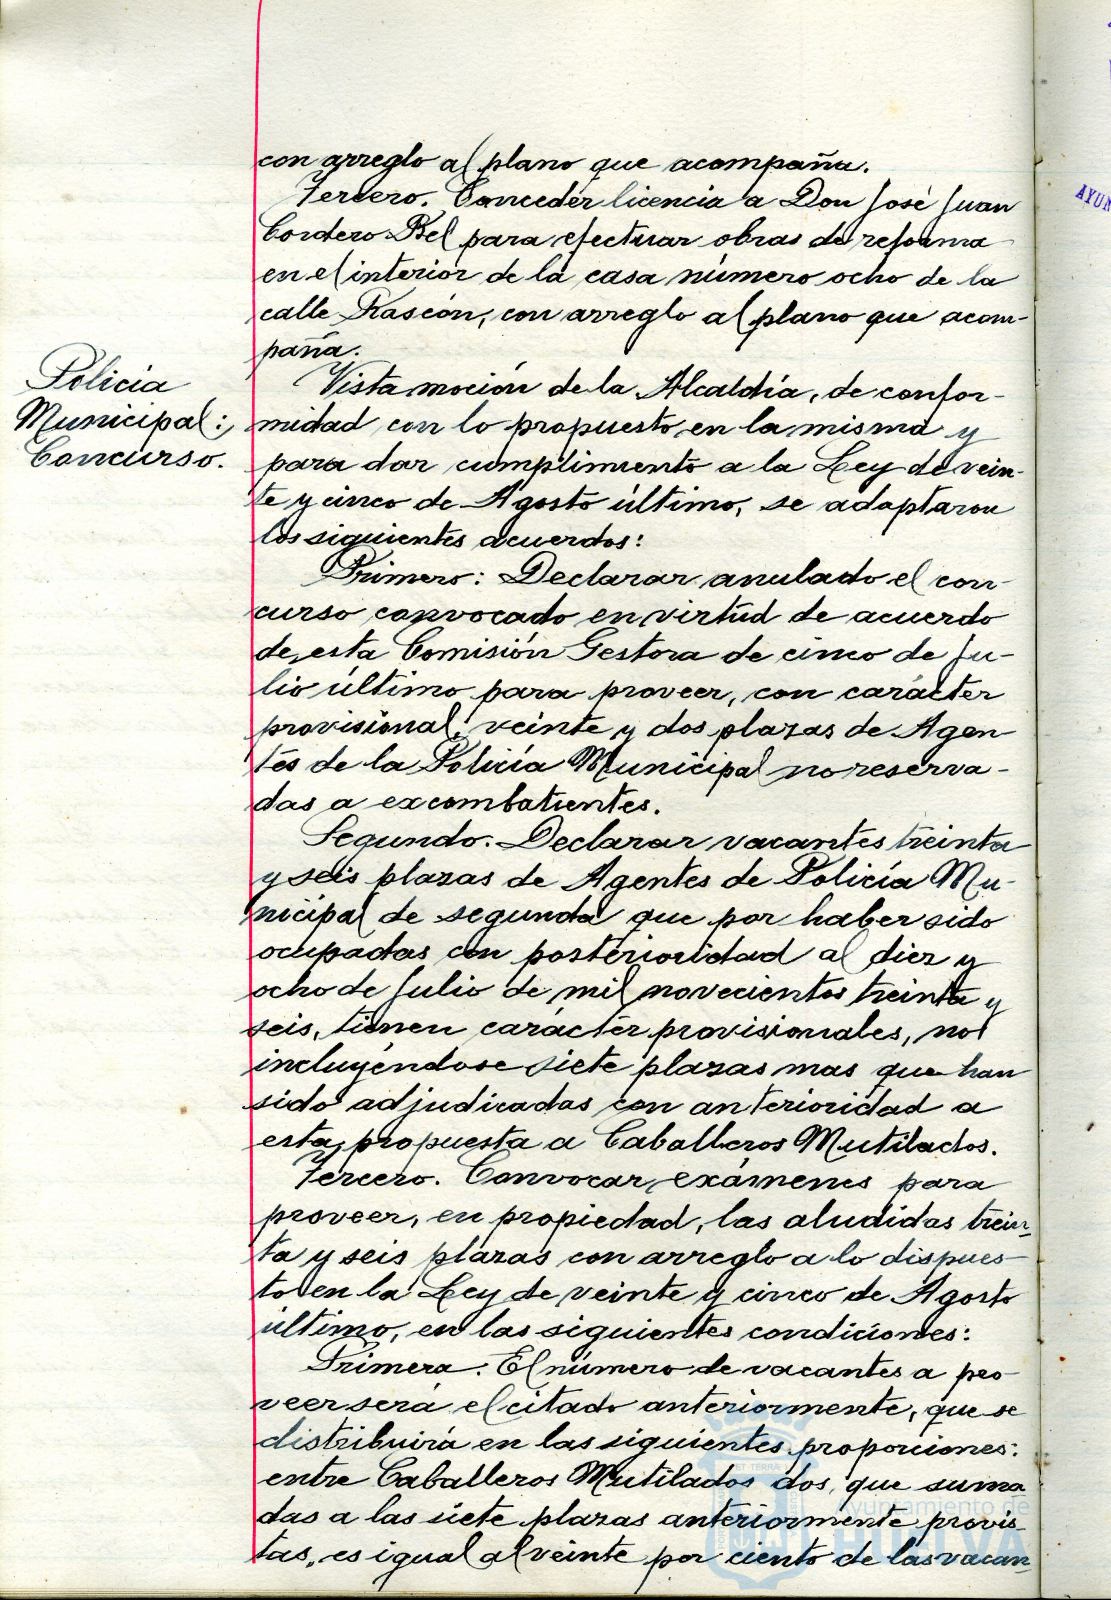 con arreglo al plano que acompaña.
Tercero. Conceder licencia a Don José Juan
Cordero Bel para efectuar obras de reforma
en el interior de la casa número ocho de la
calle Rascón, con arreglo al plano que acom-
paña.
Policía
Municipal:
Concurso.
Vista moción de la Alcaldía, de confor-
midad con lo propuesto en la misma y
para dar cumplimiento a la Ley de vein-
te y cinco de Agosto último, se adoptaron
los siguientes acuerdos:
Primero: Declarar anulado el con-
curso convocado en virtud de acuerdo
de esta Comisión Gestora de cinco de Ju-
lio último para proveer, con carácter
provisional, veinte y dos plazas de Agen-
tes de la Policía Municipal no reserva-
das a excombatientes.
Segundo. Declarar vacantes treinta
y seis plazas de Agentes de Policía Mu-
nicipal de segunda que por haber sido
ocupadas con posterioridad al diez y
ocho de Julio de mil novecientos treinta y
seis, tienen carácter provisionales, no
incluyéndose siete plazas mas que han
sido adjudicadas con anterioridad a
esta propuesta a Caballeros Mutilados.
Tercero. Convocar exámenes para
proveer, en propiedad, las aludidas trein-
ta y seis plazas con arreglo a lo dispues-
to en la Ley de veinte y cinco de Agosto
último, en las siguientes condiciones:
Primera. El número de vacantes a pro-
veer será el citado anteriormente, que se
distribuirá en las siguientes proporciones:
entre Caballeros Mutilados dos, que suma-
das a las siete plazas anteriormente provis-
tas, es igual al veinte por ciento de las vacan-
Ayuntamiento de
HUELVA
AYUN